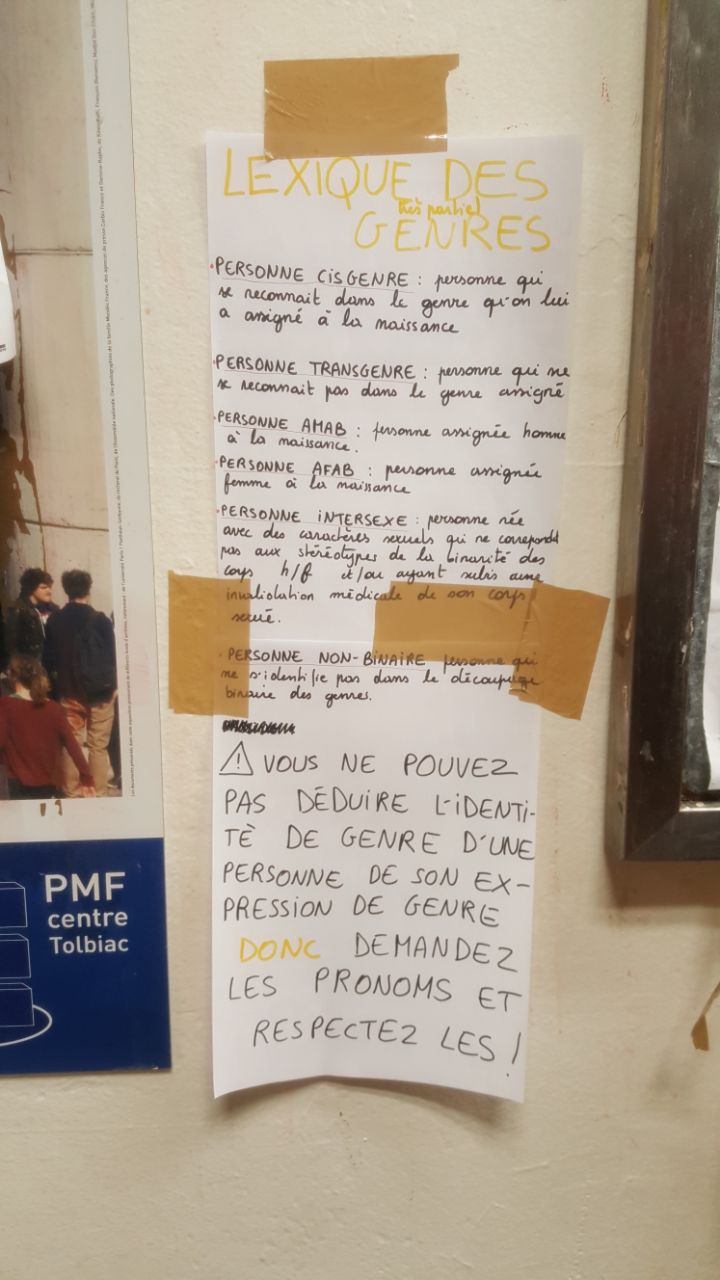 LEXIQUE DES
très partiel
GENRES
• PERSONNE CISGENRE : personne qui
se reconnait dans le genre qu'on lui
a assigné à la naissance
• PERSONNE TRANSGENRE : personne qui ne
se reconnait pas dans le genre assigné
• PERSONNE AMAB : personne assignée homme
à la naissance.
• PERSONNE AFAB : personne assignée
femme à la naissance
• PERSONNE INTERSEXE : personne née
avec des caractères sexuels qui ne correspondent
pas aux stéréotypes de la binarité des
corps h/f et/ou ayant subis une
invalidation médicale de son corps
sexué.
• PERSONNE NON-BINAIRE personne qui
ne s'identifie pas dans le découpage
binaire des genres.
⚠ VOUS NE POUVEZ
PAS DÉDUIRE L'IDENTI-
TÈ DE GENRE D'UNE
PERSONNE DE SON EX-
PRESSION DE GENRE
DONC DEMANDEZ
LES PRONOMS ET
RESPECTEZ LES !
PMF
centre
Tolbiac